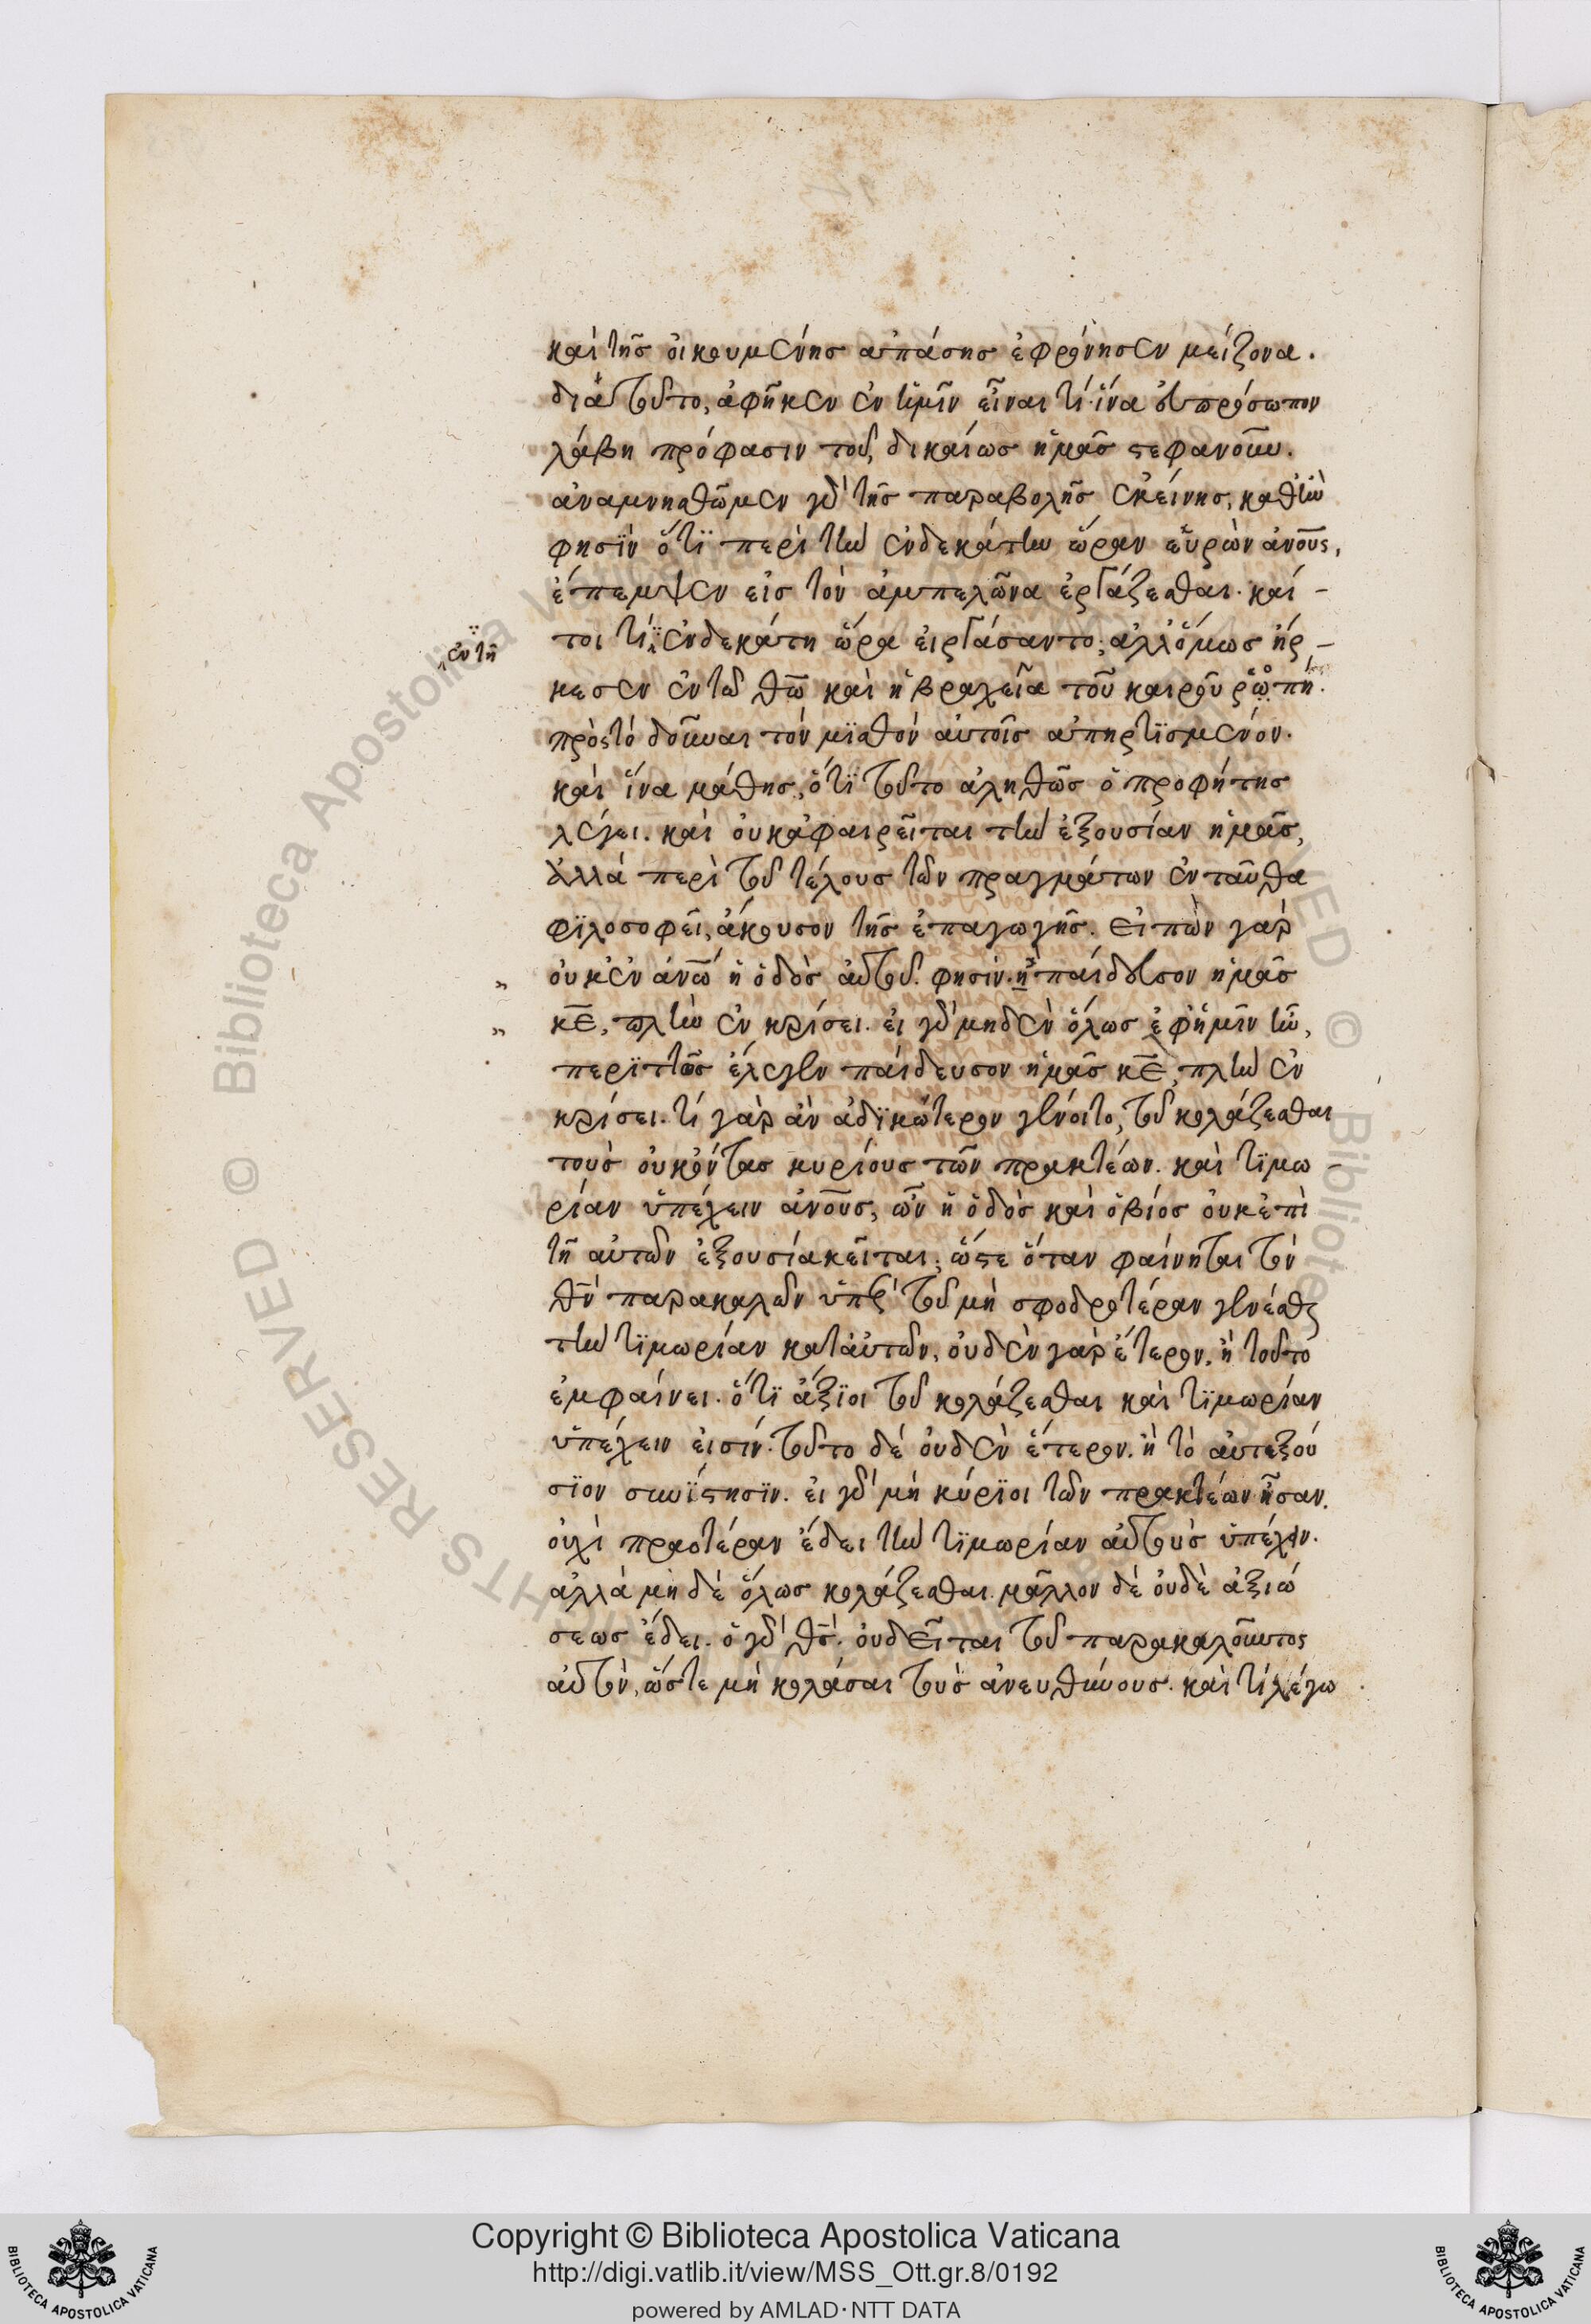 καὶ τῆς οἰκουμένης ἁπάσης ἐφρόνησεν μείζονα.
διὰ τοῦτο, ἀφῆκεν ἐν ἡμῖν εἶναι τί· ἵνα εὐπρόσωπον
λάβη πρόφασιν τοῦ, δικαίως ἡμᾶς στεφανοῦν.
ἀναμνησθῶμεν γὰρ τῆς παραβολῆς ἐκείνης, καθ' ἣν
φησὶν ὅτι περὶ τὴν ἑνδεκάτην ὥραν εὑρὼν ἀνους,
ἔπεμψεν εἰς τὸν ἀμπελῶνα ἐργάζεσθαι. καί-
τοι τί ἑνδεκάτη ὥρα εἰργάσαντο; ἀλλ' ὅμως ἤρ-
ἐν τῆ
κεσεν ἐν τῶ θω καὶ ἡ βραχεῖα τοῦ καιροῦ ῥοπὴ.
πρὸς τὸ δοῦναι τὸν μισθὸν αὐτοῖς ἀπηρτισμένον.
καὶ ἵνα μάθης, ὅτι τοῦτο ἀληθῶς ὁ προφήτης
λέγει. καὶ οὐκ ἀφαιρεῖται τὴν ἐξουσίαν ἡμᾶς,
ἀλλὰ περὶ τοῦ τέλους τῶν πραγμάτων ἐνταῦθα
φιλοσοφεῖ, ἄκουσον τῆς ἐπαγωγῆς. εἰπὼν γὰρ
οὐκ ἐν ἀνω ἡ ὁδὸς αὐτοῦ. φησίν. παίδευσον ἡμᾶς
κε, πλὴν ἐν κρίσει. εἰ γὰρ μηδὲν ὅλως ἐφ' ἡμῖν ἦν,
περιττῶς ἔλεγεν παίδευσον ἡμᾶς κε, πλὴν ἐν
κρίσει. τί γὰρ ἂν ἀδικώτερον γένοιτο, τοῦ κολάζεσθαι
τοὺς οὐκ ὄντας κυρίους τῶν πρακτέων. καὶ τιμω-
ρίαν ὑπέχειν ἀνους, ὧν ἡ ὁδὸς καὶ ὁ βίος οὐκ ἐπὶ
τῆ αὐτῶν ἐξουσία κεῖται; ὥστε ὅταν φαίνηται τὸν
θν παρακαλῶν ὑπὲρ τοῦ μὴ σφοδροτέραν γενέσθαι
τὴν τιμωρίαν κατ' αὐτῶν, οὐδὲν γὰρ ἕτερον. ἢ τοῦτο
ἐμφαίνει. ὅτι ἄξιοι τοῦ κολάζεσθαι καὶ τιμωρίαν
ὑπέχειν εἰσίν. τοῦτο δὲ οὐδὲν ἕτερον. ἢ τὸ αὐτεξού
σιον συνίστησιν. εἰ γὰρ μὴ κύριοι τῶν πρακτέων ἦσαν.
οὐχὶ πραοτέραν ἔδει τὴν τιμωρίαν αὐτοὺς ὑπέχειν.
ἀλλὰ μὴ δὲ ὅλως κολάζεσθαι. μᾶλλον δὲ οὐδὲ ἀξιώ
σεως ἔδει. ὁ γὰρ θς. οὐ δεῖται τοῦ παρακαλοῦντος
αὐτὸν, ὥστε μὴ κολάσαι τοὺς ἀνευθύνους. καὶ τί λέγω
Copyright © Biblioteca Apostolica Vaticana
http://digi.vatlib.it/view/MSS_Ott.gr.8/0192
powered by AMLAD·NTT DATA